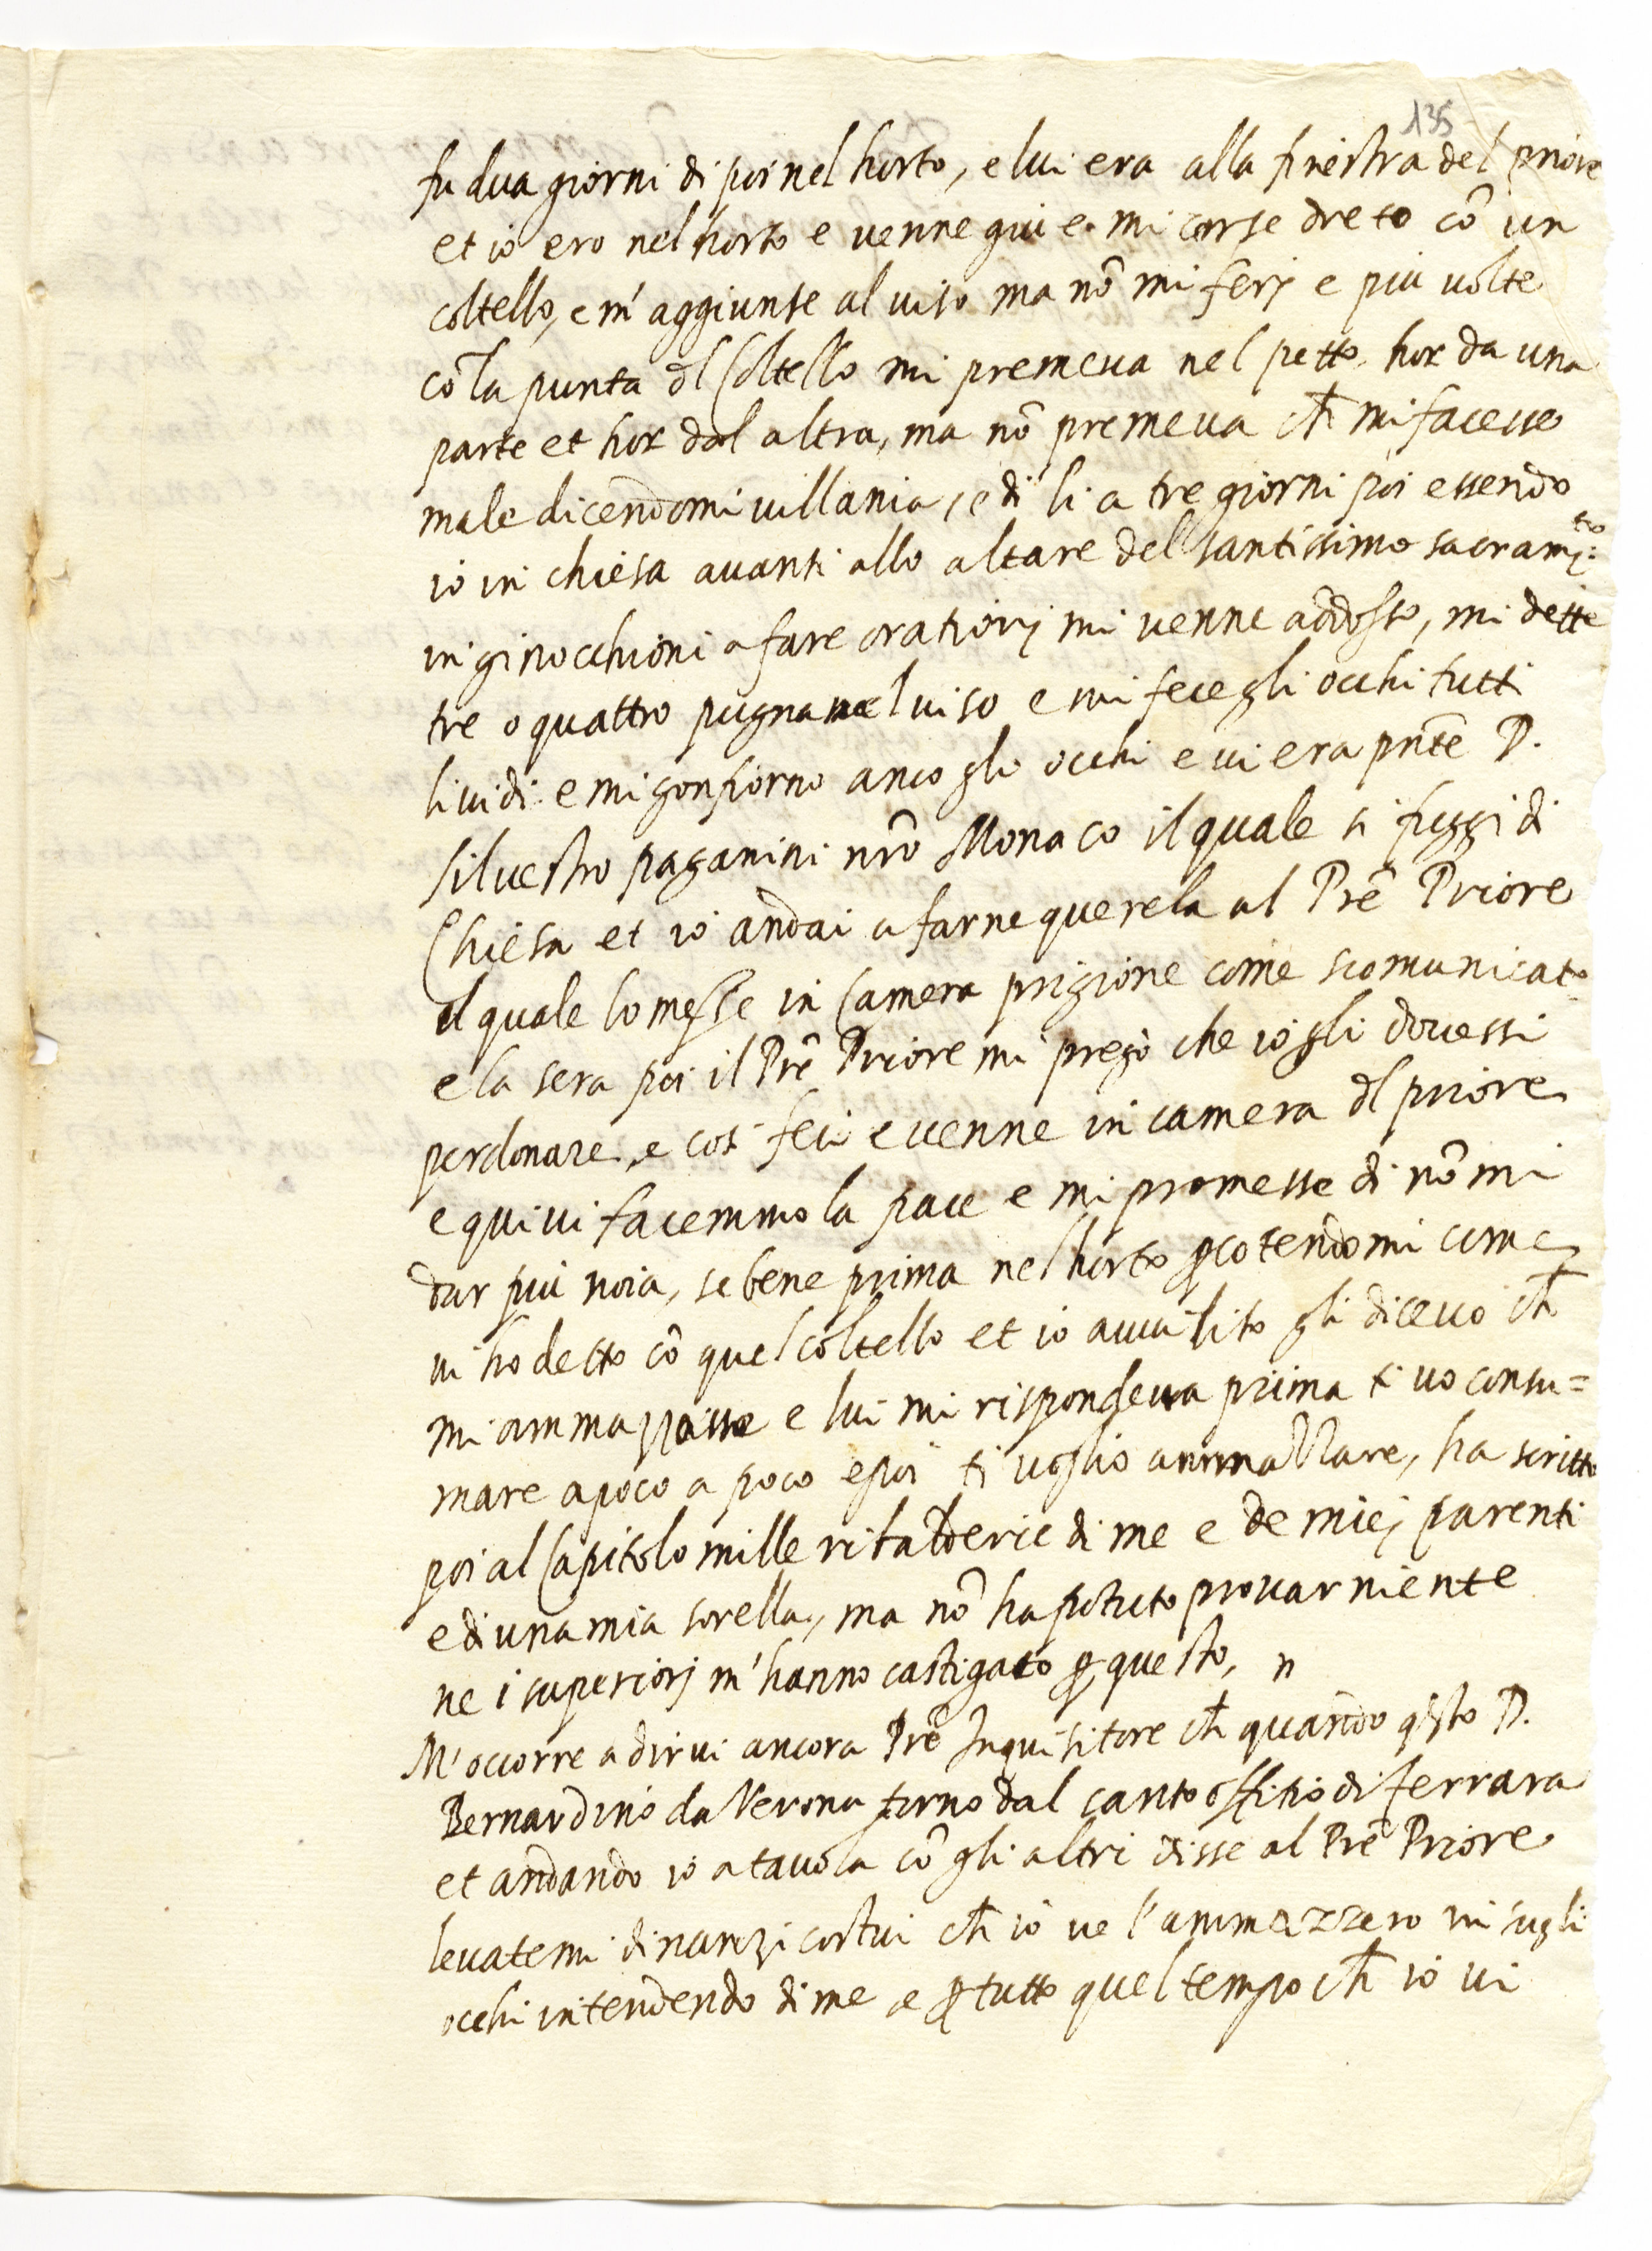 135
fu dua giorni di poi nel horto, e lui era alla finestra del priore
et io ero nel horto e venne giu e mi corse dreto cō un
coltello, e m' aggiunse al viso ma nō mi ferj e piu volte
cō la punta dl Coltello mi premeva nel petto hor da una
parte et hor dal altra, ma nō premeva ch̄ mi facesse
male dicendomi villania, e di li a tre giorni poi essendo
io in chiesa avanti allo altare del santissimo sacramto:
in ginocchioni a fare orationj mi venne addosso, mi dette
tre o quattro pugna nel viso e mi fece gli occhi tutti
lividi e mi gonfiorno anco gli occhi e vi era pn̄te D.
Silvestro paganini nr̄o Monaco il quale si fuggi di
Chiesa et io andai a farne querela al Pr̄e Priore
il quale lo messe in Camera prigione come scomunicato
e la sera poi il Pr̄e Priore mi pregò che io gli dovessi
perdonare, e cosi feci e venne in camera dl priore
e quivi facemmo la pace e mi promesse di nō mi
dar piu noia, se bene prima nel horto ꝑcotendomi come
vi ho detto cō quel coltello et io avvilito gli dicevo ch̄
mi ammazzasse e lui mi rispondeva prima ti vo consu=
mare a poco a poco e poi ti voglio ammazzare, ha scritto
poi al Capitolo mille ribalderie di me e de miej parenti
e di una mia sorella, ma nō ha potuto provar niente
ne i superiorj m' hanno castigato ꝑ questo, n
M' occorre a dirvi ancora Pr̄e Inquisitore ch̄ quando qsto D.
Bernardino da Verona torno dal santo offitio di ferrara
et andando io a tavola cō gli altri disse al Pr̄e Priore
levatemi dinanzi costui ch̄ io ve l' ammazzero in sugli
occhi intendendo di me e ꝑ tutto quel tempo ch̄ io vi